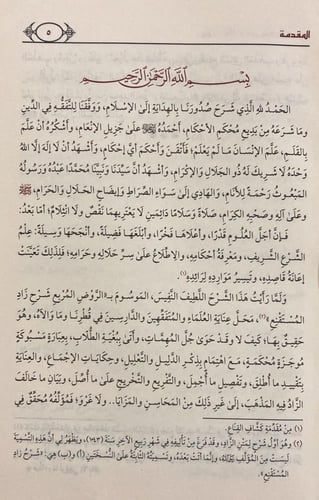 المقدمة
٥
بِسْمِ اللَّهِ الرَّحْمَنِ الرَّحِيمِ
الحَمْدُ للهِ الَّذِي شَرَحَ صُدُورَنَا بِالهِدَايَةِ إِلَىٰ الإِسْلَامِ، وَوَفَّقَنَا لِلتَّفَقُّهِ فِي الدِّينِ
وَمَا شَرَعَهُ مِنْ بَدِيعِ مُحْكَمِ الأَحْكَامِ، أَحْمَدُهُ ﷻ عَلَىٰ جَزِيلِ الإِنْعَامِ، وَأَشْكُرُهُ أَنْ عَلَّمَ
بِالقَلَمِ، عَلَّمَ الإِنْسَانَ مَا لَمْ يَعْلَمْ؛ فَأَتْقَنَ وَأَحْكَمَ أَيَّ إِحْكَامٍ، وَأَشْهَدُ أَنْ لَا إِلَهَ إِلَّا اللهُ
وَحْدَهُ لَا شَرِيكَ لَهُ ذُو الجَلَالِ وَالإِكْرَامِ، وَأَشْهَدُ أَنَّ سَيِّدَنَا وَنَبِيَّنَا مُحَمَّدًا عَبْدُهُ وَرَسُولُهُ
المَبْعُوثُ رَحْمَةً لِلأَنَامِ، وَالهَادِي إِلَىٰ سَوَاءِ الصِّرَاطِ وَإِيضَاحِ الحَلَالِ وَالحَرَامِ، ﷺ
وَعَلَىٰ آلِهِ وَصَحْبِهِ الكِرَامِ، صَلَاةً وَسَلَامًا دَائِمَيْنِ لَا يَعْتَرِيهِمَا نَقْصٌ وَلَا انْثِلَامٌ؛ أَمَّا بَعْدُ:
فَإِنَّ أَجَلَّ العُلُومِ قَدْرًا، وَأَعْلَاهَا فَخْرًا، وَأَبْلَغَهَا فَضِيلَةً، وَأَنْجَحَهَا وَسِيلَةً: عِلْمُ
الشَّرْعِ الشَّرِيفِ، وَمَعْرِفَةُ أَحْكَامِهِ، وَالاِطِّلَاعُ عَلَىٰ سِرِّ حَلَالِهِ وَحَرَامِهِ؛ فَلِذَلِكَ تَعَيَّنَتْ
إِعَانَةُ قَاصِدِهِ، وَتَيْسِيرُ مَوَارِدِهِ لِرَائِدِهِ(١).
وَلَمَّا رَأَيْتُ هَذَا الشَّرْحَ اللَّطِيفَ النَّفِيسَ، المَوْسُومَ بِـ«الرَّوْضِ المُرْبِعِ شَرْحِ زَادِ
المُسْتَقْنِعِ»(٢)، مَحَلَّ عِنَايَةِ العُلَمَاءِ وَالمُتَفَقِّهِينَ وَالدَّارِسِينَ فِي قُطْرِنَا وَمَا وَالَاهُ، وَهُوَ
حَقِيقٌ بِهَا، كَيْفَ لَا وَقَدْ حَوَىٰ جُلَّ المُهِمَّاتِ، وَأَتَىٰ بِبُغْيَةِ الطُّلَّابِ، بِعِبَارَةٍ مَسْبُوكَةٍ
مُوجَزَةٍ مُحْكَمَةٍ، مَعَ اهْتِمَامٍ بِذِكْرِ الدَّلِيلِ وَالتَّعْلِيلِ، وَحِكَايَاتِ الإِجْمَاعِ، وَالعِنَايَةِ
بِتَقْيِيدِ مَا أُطْلِقَ، وَتَفْصِيلِ مَا أُجْمِلَ، وَالتَّفْرِيعِ وَالتَّخْرِيجِ عَلَىٰ مَا أُصِّلَ، وَبَيَانِ مَا خَالَفَ
الزَّادُ فِيهِ المَذْهَبَ، إِلَىٰ غَيْرِ ذَلِكَ مِنَ المَحَاسِنِ وَالمَزَايَا.. وَلَا غَرْوَ؛ فَمُؤَلِّفُهُ مُحَقِّقٌ فِي
(١) مِنْ مُقَدِّمَةِ كَشَّافِ القِنَاعِ.
(٢) وَهُوَ أَوَّلُ شَرْحٍ لِمَتْنِ الزَّادِ، وَقَدْ فَرَغَ مِنْ تَأْلِيفِهِ فِي شَهْرِ رَبِيعٍ الآخِرِ سَنَةَ (١٠٤٣)، وَيَظْهَرُ لِي أَنَّ هَذِهِ التَّسْمِيَةَ
لَيْسَتْ مِنَ المُؤَلِّفِ بِنَفْسِهِ، وَإِنَّمَا أَتَتْ بَعْدَهُ، وَتَسْمِيَتُهُ الثَّابِتَةُ عَلَىٰ النُّسْخَتَيْنِ (أ) وَ(ب) هِيَ: «شَرْحُ زَادِ
المُسْتَقْنِعِ».